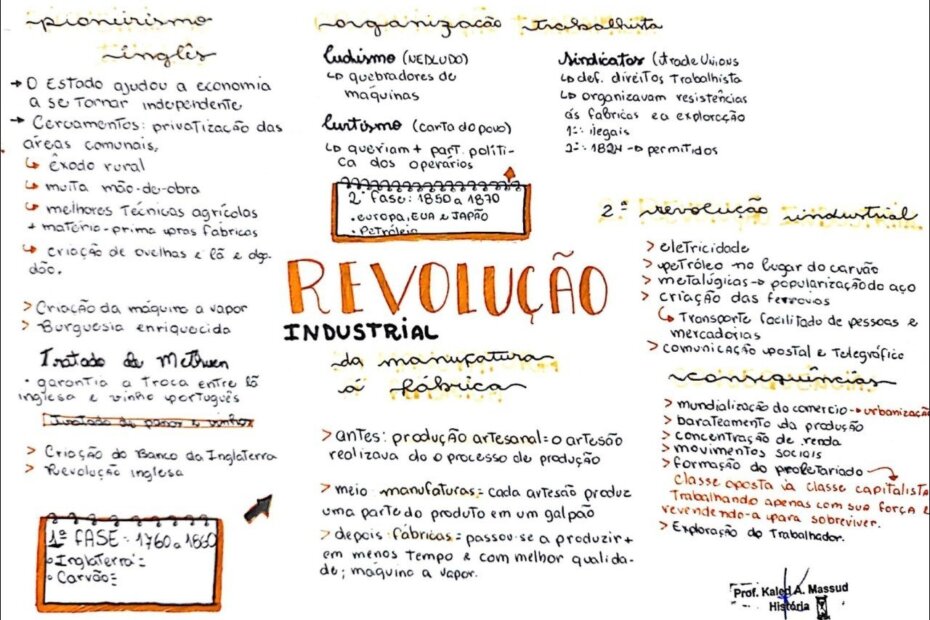 pioneirismo
inglês
→ O Estado ajudou a economia
a se tornar independente
→ Cercamentos: privatização das
áreas comunais,
↳ êxodo rural
↳ muita mão-de-obra
↳ melhores técnicas agrícolas
+ matéria-prima pras fabricas
↳ criação de ovelhas e lã e dgo.
dão.
> Criação da máquina a vapor
> Burguesia enriquecida
Tratado de Methuen
• garantia a troca entre lã
inglesa e vinho português
Tratado de panos e vinhos
> Criação do Banco da Inglaterra
> Revolução inglesa
1ª FASE: 1760 a 1860
• Inglaterra:
• Carvão:
organização trabalhista
ludismo (NEDLUDO)
↳ quebradores de
máquinas
(carta do povo)
↳ queriam + part. políti-
ca dos operários
2ª fase: 1850 a 1870
• europa, EUA e JAPÃO
• Petróleio
REVOLUÇÃO
INDUSTRIAL
da manufatura
à fábrica
> antes: produção artesanal = o artesão
realizava do o processo de produção
> meio: manufaturas = cada artesão produz
uma parte do produto em um galpão
> depois: fabricas = passou-se a produzir +
em menos tempo e com melhor qualida-
de; máquina a vapor.
sindicatos (trade Unions
↳ def. direitos Trabalhista
↳ organizavam resistências
ás fabricas e a exploração
1º: ilegais
2º: 1824 → permitidos
2ª revolução industrial
> eletricidade
> petróleo no lugar do carvão
> metalúgicas → popularização do aço
> criação das ferrovias
↳ Transporte facilitado de pessoas e
mercadorias
> comunicação postal e Telegráfico
consequências
> mundialização do comercio → urbanização
> barateamento da produção
> concentração de renda
> movimentos sociais
> formação do proletariado
Classe oposta à classe capitalista
Trabalhando apenas com sua força e
revendendo-a para sobreviver.
> Exploração do Trabalhador.
Prof. Kaled A. Massud
História